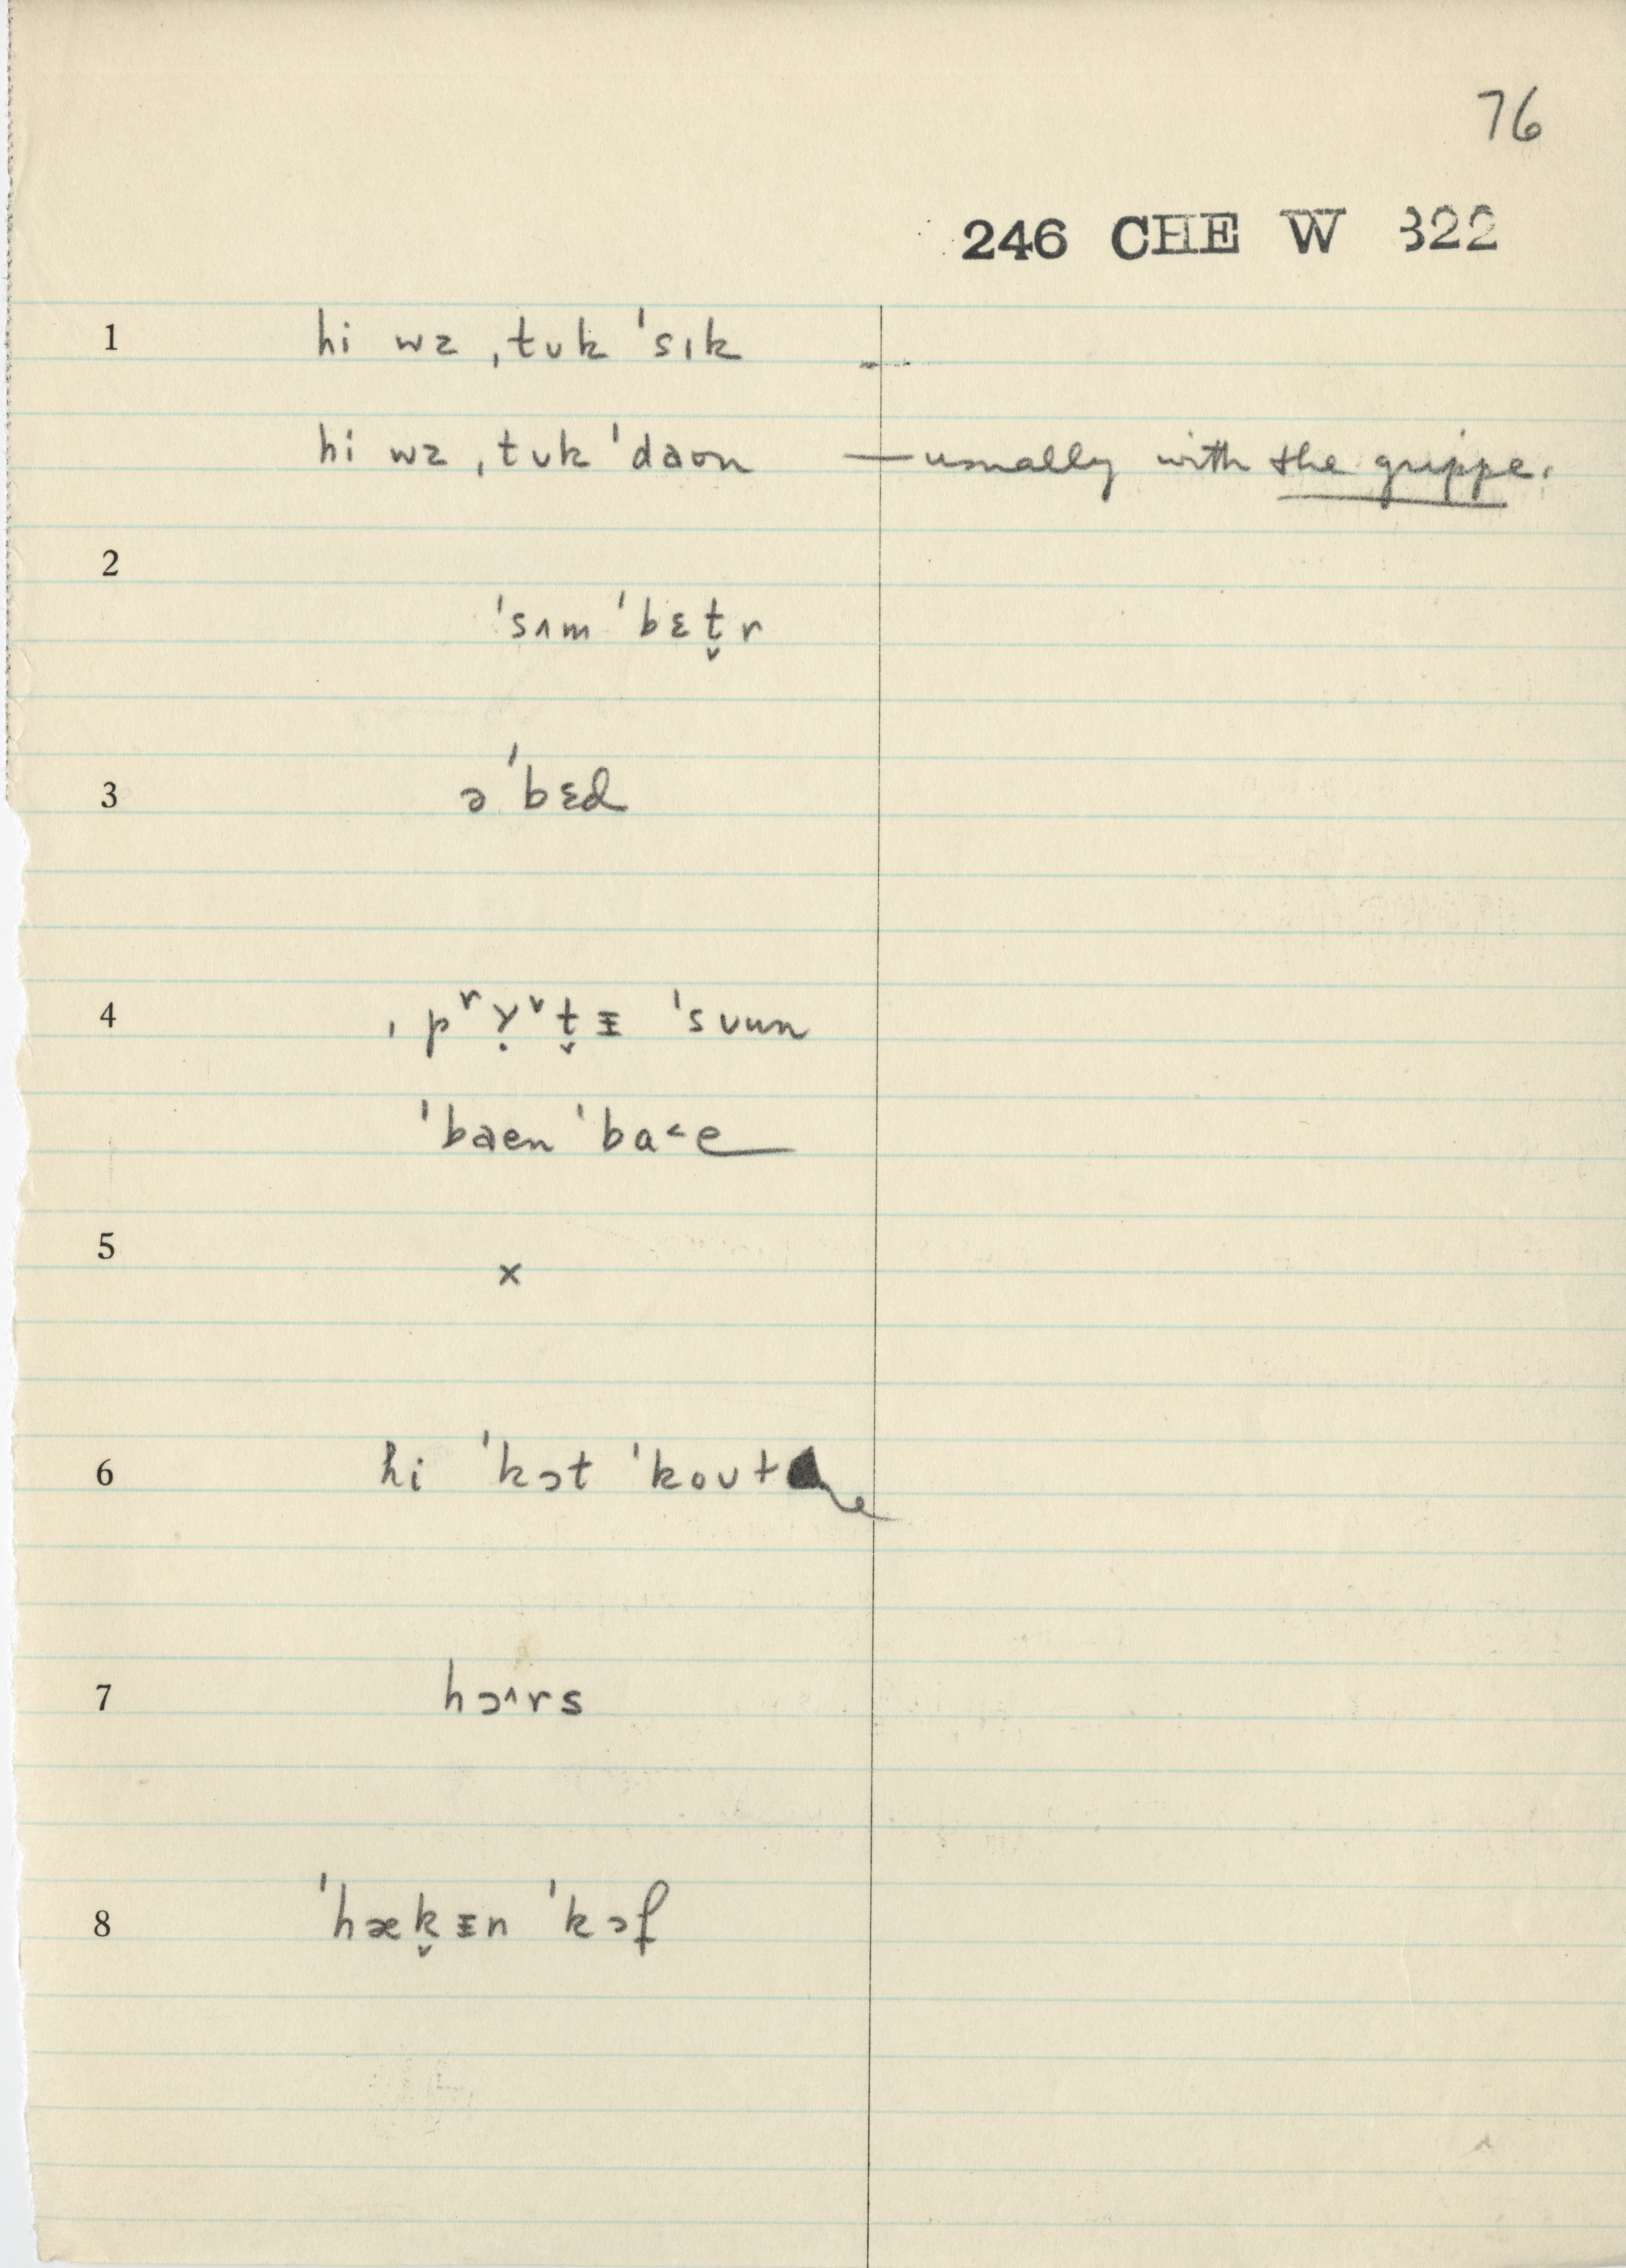 76
246 CHE W 322
1 hi wz ˌtʊk ˈsɪk —
hi wz ˌtʊk ˈdaʊn — usually with the grippe.
2
ˈsʌm ˈbɛt̬r
3 əˈbɛd
4 ˌpʳɣ̣ʳt̬ɪ ˈsʊun
ˈbaen ˈba˂e
5
x
6 hi ˈkɔt ˈkoʊ
7 hɔ^rs
8 ˈhæk̬ɪn ˈkɔf